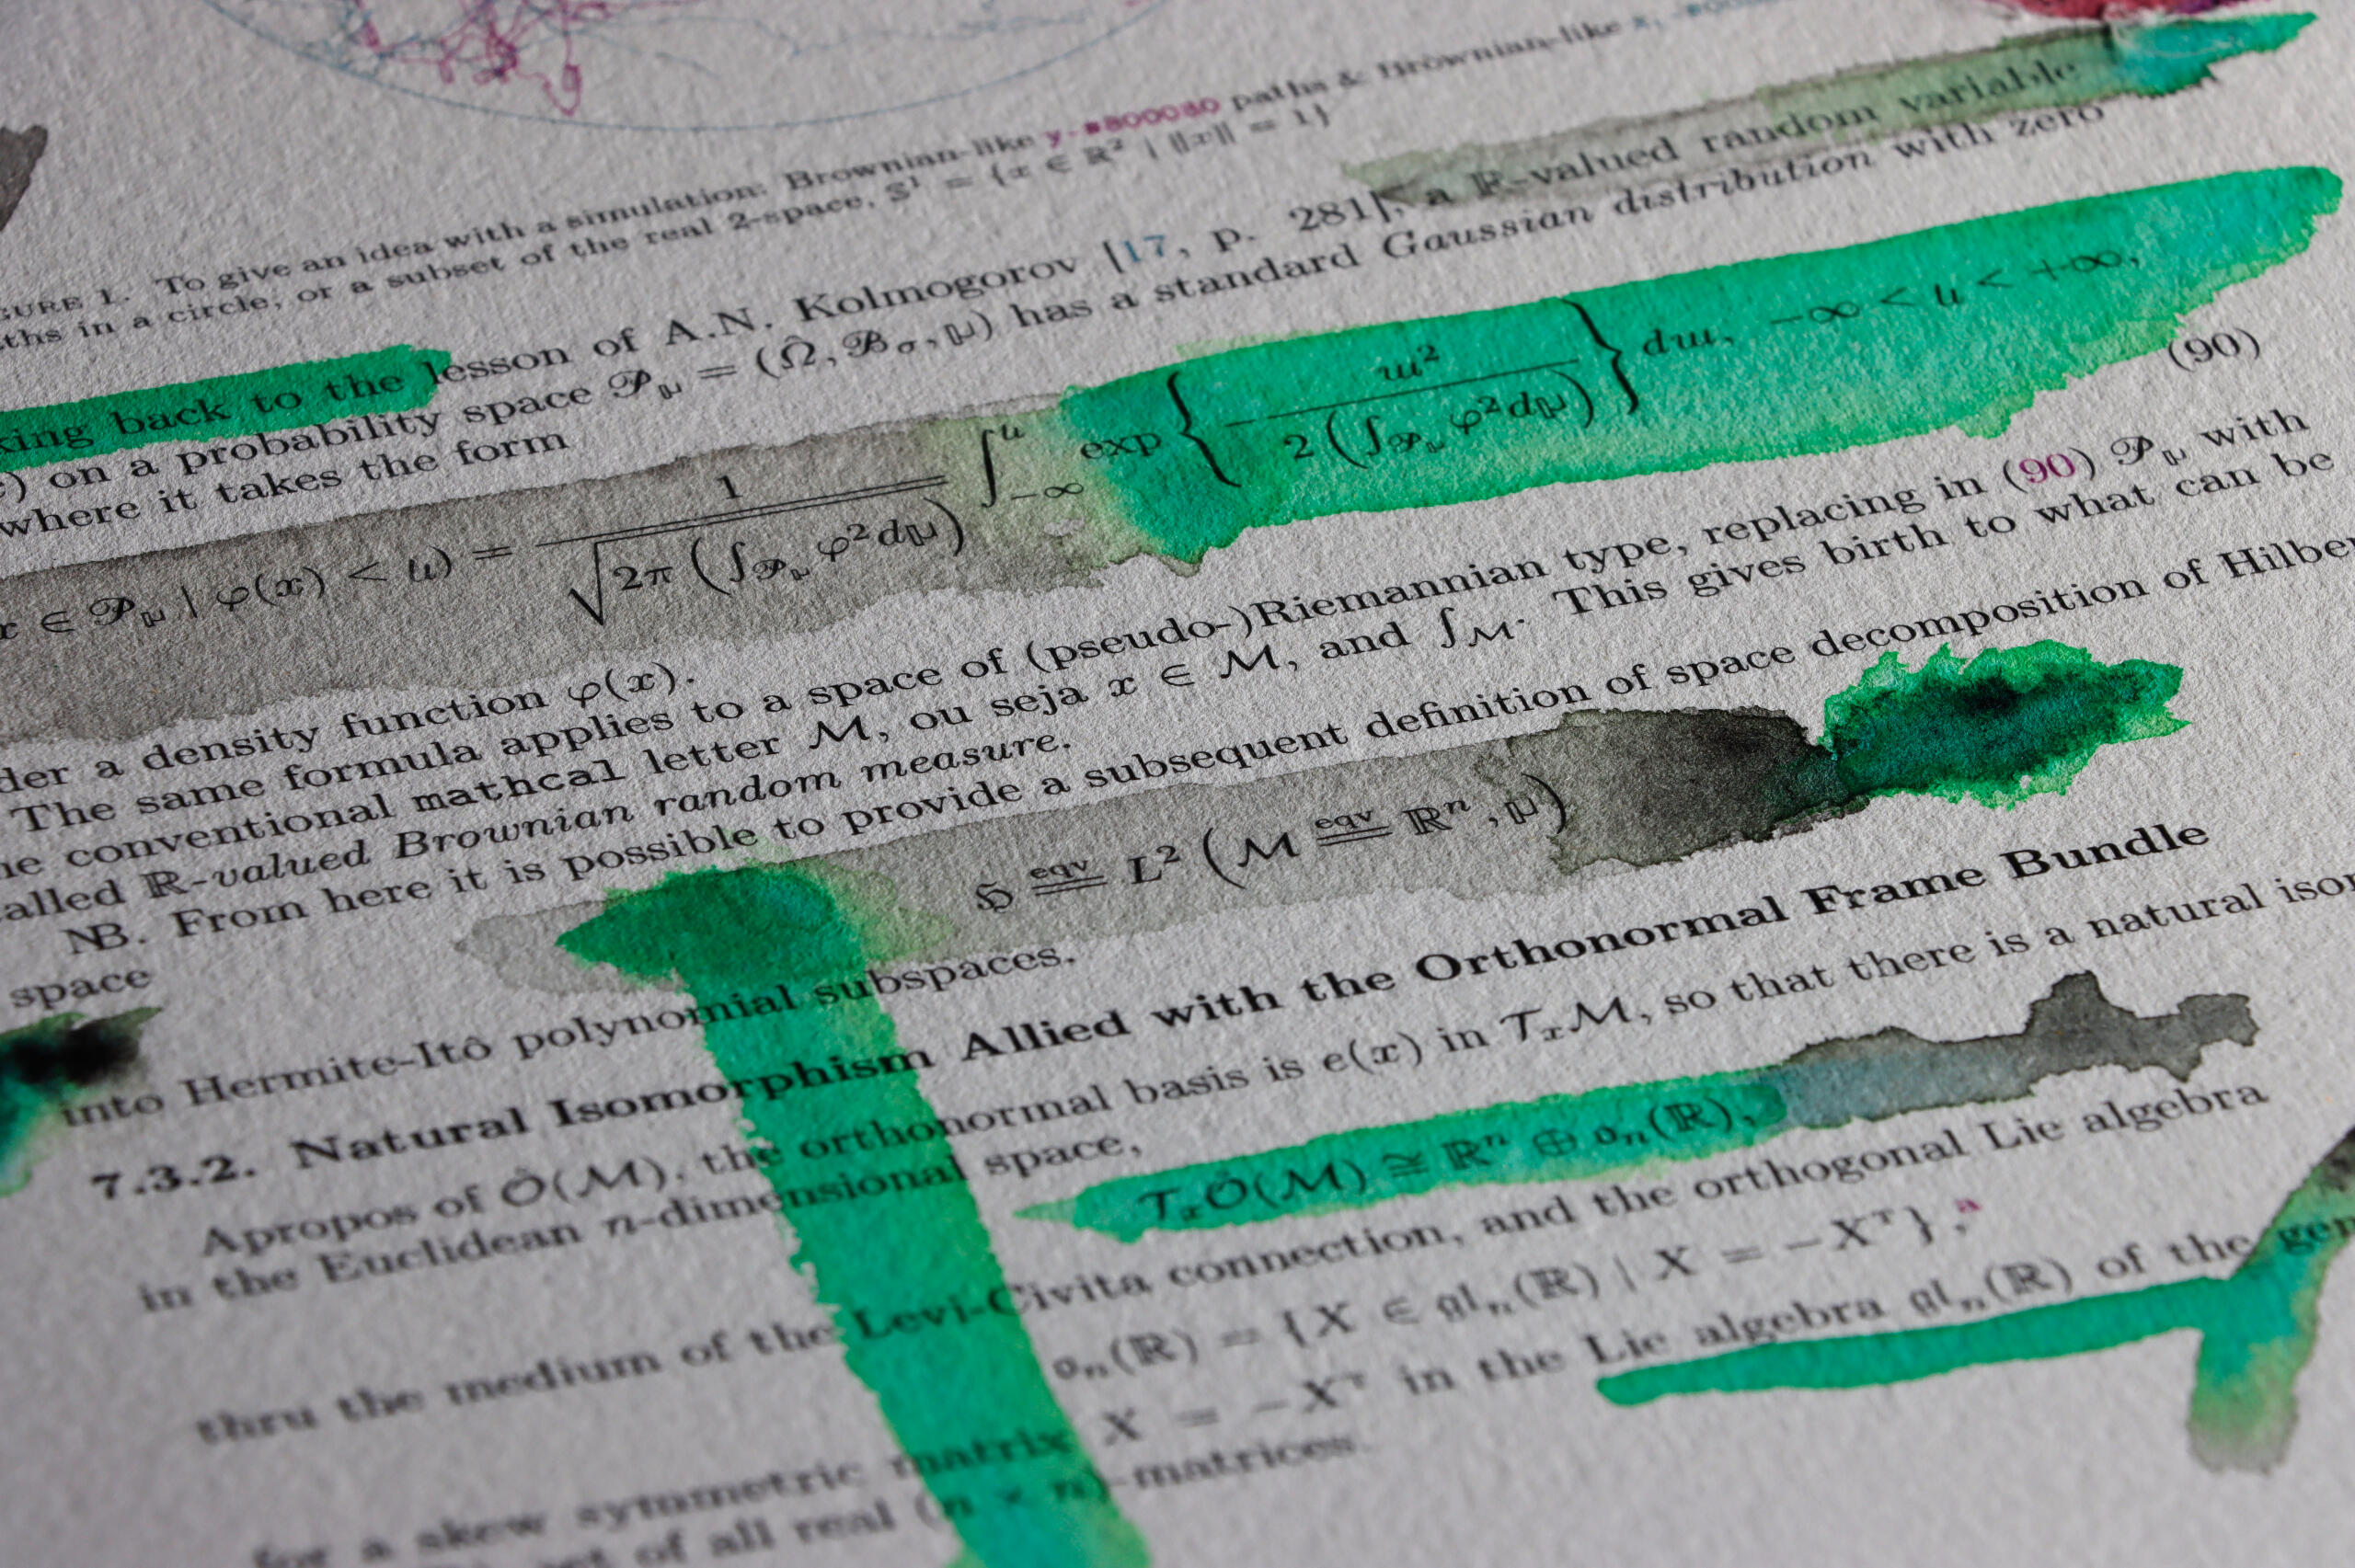 GURE 1. To give an idea with a simulation: Brownian-like y-#800080 paths & Brownian-like
ths in a circle, or a subset of the real 2-space, 𝕊¹ = {x ∈ ℝ² | ||x|| = 1}
king back to the lesson of A.N. Kolmogorov [17, p. 281], a ℝ-valued random variable
) on a probability space 𝒫_μ = (Ω̂, ℬ_σ, μ) has a standard Gaussian distribution with zero
where it takes the form
x ∈ 𝒫_μ | φ(x) < u) = 1 / √(2π (∫_𝒫_μ φ²dμ)) ∫_{-∞}^{u} exp { − w² / 2 (∫_𝒫_μ φ²dμ) } dw, −∞ < u < +∞,
(90)
der a density function φ(x).
The same formula applies to a space of (pseudo-)Riemannian type, replacing in (90) 𝒫_μ with
he conventional mathcal letter ℳ, ou seja x ∈ ℳ, and ∫_ℳ. This gives birth to what can be
called ℝ-valued Brownian random measure.
NB. From here it is possible to provide a subsequent definition of space decomposition of Hilber
space
ℌ eqv== L² (ℳ eqv== ℝⁿ, μ)
into Hermite-Itô polynomial subspaces.
7.3.2. Natural Isomorphism Allied with the Orthonormal Frame Bundle
Apropos of Ô(ℳ), the orthonormal basis is e(x) in 𝒯ₓℳ, so that there is a natural isor
in the Euclidean n-dimensional space,
𝒯ₓÔ(ℳ) ≅ ℝⁿ ⊕ 𝔬ₙ(ℝ),
thru the medium of the Levi-Civita connection, and the orthogonal Lie algebra
𝔬ₙ(ℝ) = {X ∈ 𝔤𝔩ₙ(ℝ) | X = −Xᵀ},ᵃ
for a skew symmetric matrix X = −Xᵀ in the Lie algebra 𝔤𝔩ₙ(ℝ) of the gen
set of all real (n × n)-matrices.